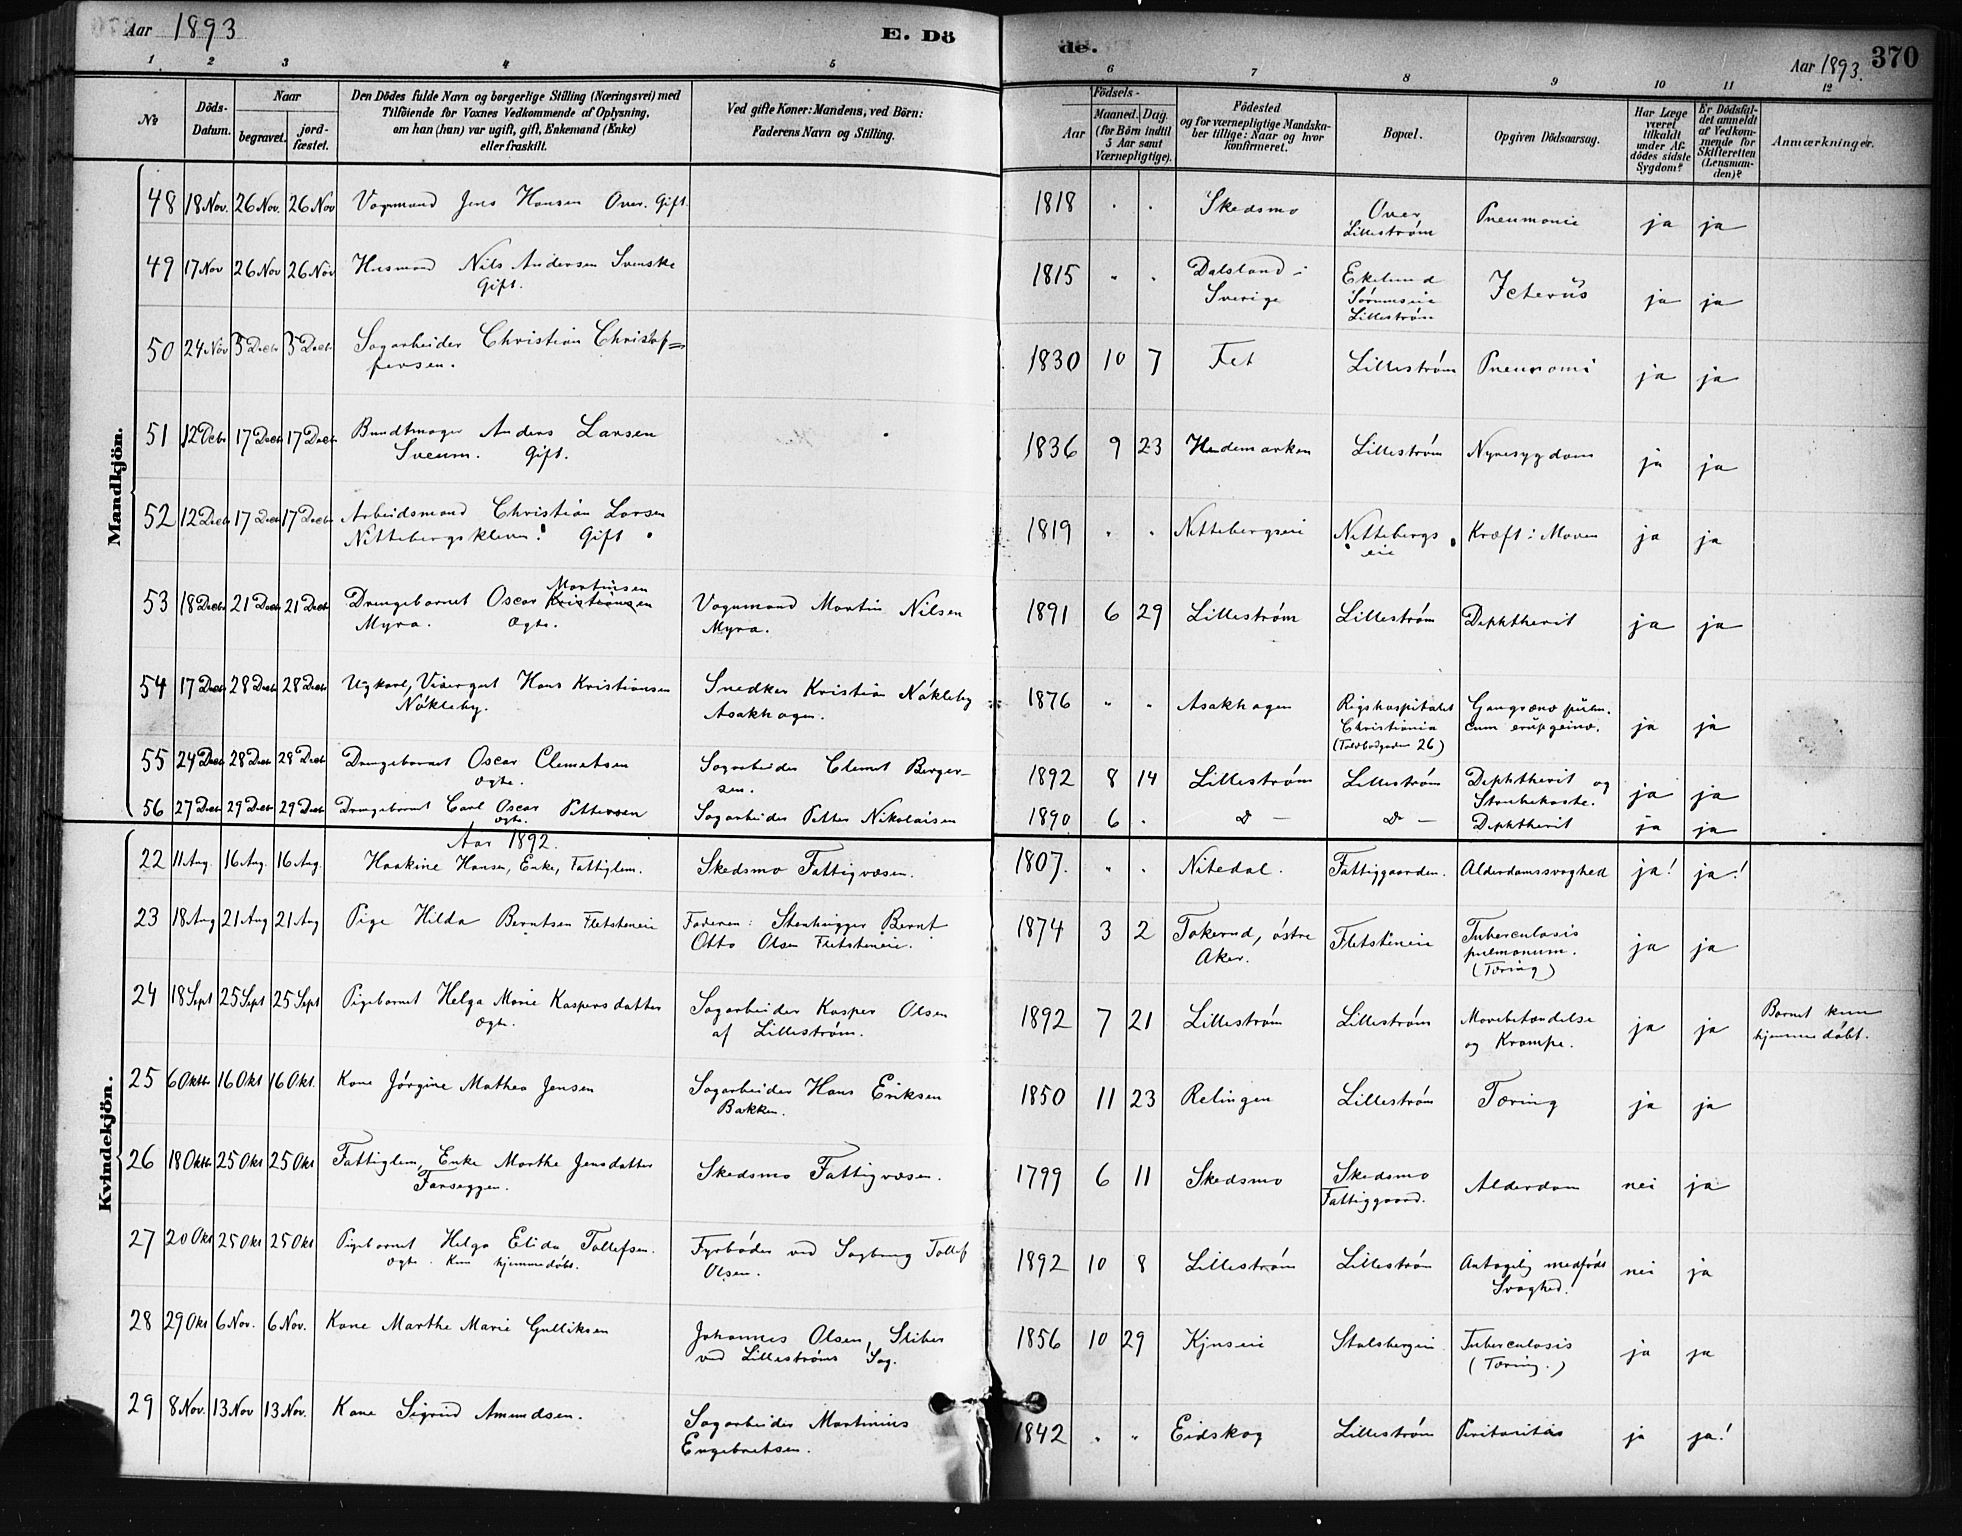 Aar 1893
E. Dö
de.
Aar 1893.
370
1 2 3 4 5 6 7 8 9 10 11 12
№
Döds-
Datum.
Naar
begravet.
jord-
fæstet.
Den Dödes fulde Navn og borgerlige Stilling (Næringsvei) med
Tilföiende for Voxnes Vedkommende af Oplysning,
om han (hun) var ugift, gift, Enkemand (Enke)
eller fraskilt.
Ved gifte Koner: Mandens, ved Börn:
Faderens Navn og Stilling.
Födsels-
Aar
Maaned. Dag.
(for Börn indtil
5 Aar samt
Værnepligtige).
Födested
og for værnepligtige Mandska-
ber tillige: Naar og hvor
konfirmeret.
Bopæl.
Opgiven Dödsaarsag.
Har Læge
været
tilkaldt
under Af-
dödes sidste
Sygdom?
Er Dödsfal-
det anmeldt
af Vedkom-
mende for
Skifteretten
(Lensman-
den)?
Anmærkninger.
Mandkjön.
48 18 Nov. 26 Nov. 26 Nov Vognmand Jens Hansen Over. Gift. 1818 " " Skedsmo Over Lillestrøm Pneumonie ja ja
49 17 Nov 26 Nov 26 Nov Husmand Nils Andersen Svenske
Gift. 1815 " " Dalsland i Sverige Ekelund Sørumseie Lillestrøm Icterus ja ja
50 24 Nov 3 Decbr 3 Decbr Sagarbeider Christian Christof=
fersen. 1830 10 7 Fet Lillestrøm Pneumoni ja ja
51 12 Decbr 17 Decbr 17 Decbr Bundtmager Anders Larsen
Sveum. Gift. 1836 9 23 Hedemarken Lillestrøm Nyresygdom ja ja
52 12 Decbr 17 Decbr 17 Decbr Arbeidsmand Christian Larsen
Nittebergskleven. Gift 1819 " " Nittebergseie Nittebergs eie Kræft i Maven ja ja
53 18 Decbr 21 Decbr 21 Decbr Drengebarnet Oscar Kristiansen Martinsen
Myra. Ægte. Vognmand Martin Nilsen
Myra. 1891 6 29 Lillestrøm Lillestrøm Diphtherit ja ja
54 17 Decbr 28 Decbr 28 Decbr Ugkarl, Visergut Hans Kristiansen
Nökleby. Snedker Kristian Nökleby
Asakhagen. 1876 " " Asakhagen Rigshospitalet Christiania (Toldbodgaden 26) Gangræna pulm. cum ja ja
55 24 Decbr 28 Decbr 28 Decbr Drengebarnet Oscar Clemetsen
Ægte. Sagarbeider Clemet Berger-
sen. 1892 8 14 Lillestrøm Lillestrøm Diphtherit og Strubehoste. ja ja
56 27 Decbr 29 Decbr 29 Decbr Drengebarnet Carl Oscar Pettersen
Ægte. Sagarbeider Petter Nikolaisen 1890 6 " Do — Do — Diphtherit ja ja
Kvindekjön.
Aar 1892.
22 11 Aug. 16 Aug. 16 Aug. Haakine Hansen, Enke, Fattiglem. Skedsmo Fattigvæsen. 1807. " " Nitedal. Fattiggaarden. Alderdomssvaghed ja! ja!
23 18 Aug 21 Aug 21 Aug Pige Hilda Berntsen Fletsteneie Faderen: Stenhugger Bernt
Otto Olsen Fletsteneie. 1874 3 2 Tokerud, östre Aker. Fletsteneie Tuberculosis pulmonum. (Tæring) ja ja
24 18 Sept 25 Sept 25 Sept Pigebarnet Helga Marie Kaspersdatter
Ægte. Sagarbeider Kasper Olsen
af Lillestrøm. 1892 7 21 Lillestrøm Lillestrøm Mavebetændelse og Krampe. ja ja Barnet kun hjemmedöbt.
25 6 Oktbr 16 Okt 16 Okt. Kone Jørgine Mathea Jensen Sagarbeider Hans Eriksen
Bakken. 1850 11 23 Relingen Lillestrøm Tæring ja ja
26 18 Oktbr 25 Okt 25 Okt Fattiglem, Enke Marthe Jensdatter
Farseggen. Skedsmo Fattigvæsen. 1799 6 11 Skedsmo Skedsmo Fattiggaard. Alderdom nei ja
27 20 Okt 25 Okt 25 Okt Pigebarnet Helga Elida Tollefsen.
Ægte. Kun hjemmedöbt. Fyrböder ved Sagbrug Tollef
Olsen. 1892 10 8 Lillestrøm Lillestrøm Antagelig medfödt Svaghed. nei ja
28 29 Okt 6 Nov. 6 Nov. Kone Marthe Marie Gulliksen Johannes Olsen, Sliber
ved Lillestrøms Sag. 1856 10 29 Kjuseie Stalsbergeie Tuberculosis (Tæring.) ja ja
29 8 Nov. 13 Nov 13 Nov. Kone Sigrid Amundsen. Sagarbeider Martinius
Engebretsen. 1842 " " Eidskog Lillestrøm Peritonitis ja ja!